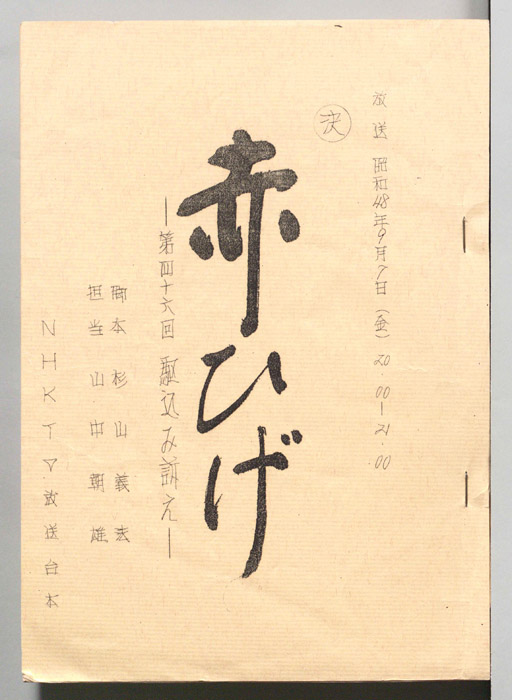 放送 昭和48年9月7日（金）20.00―21.00
決
赤ひげ
―第四十六回 駆込み訴え―
脚本 杉山義法
担当 山中朝雄
NHKTV放送台本